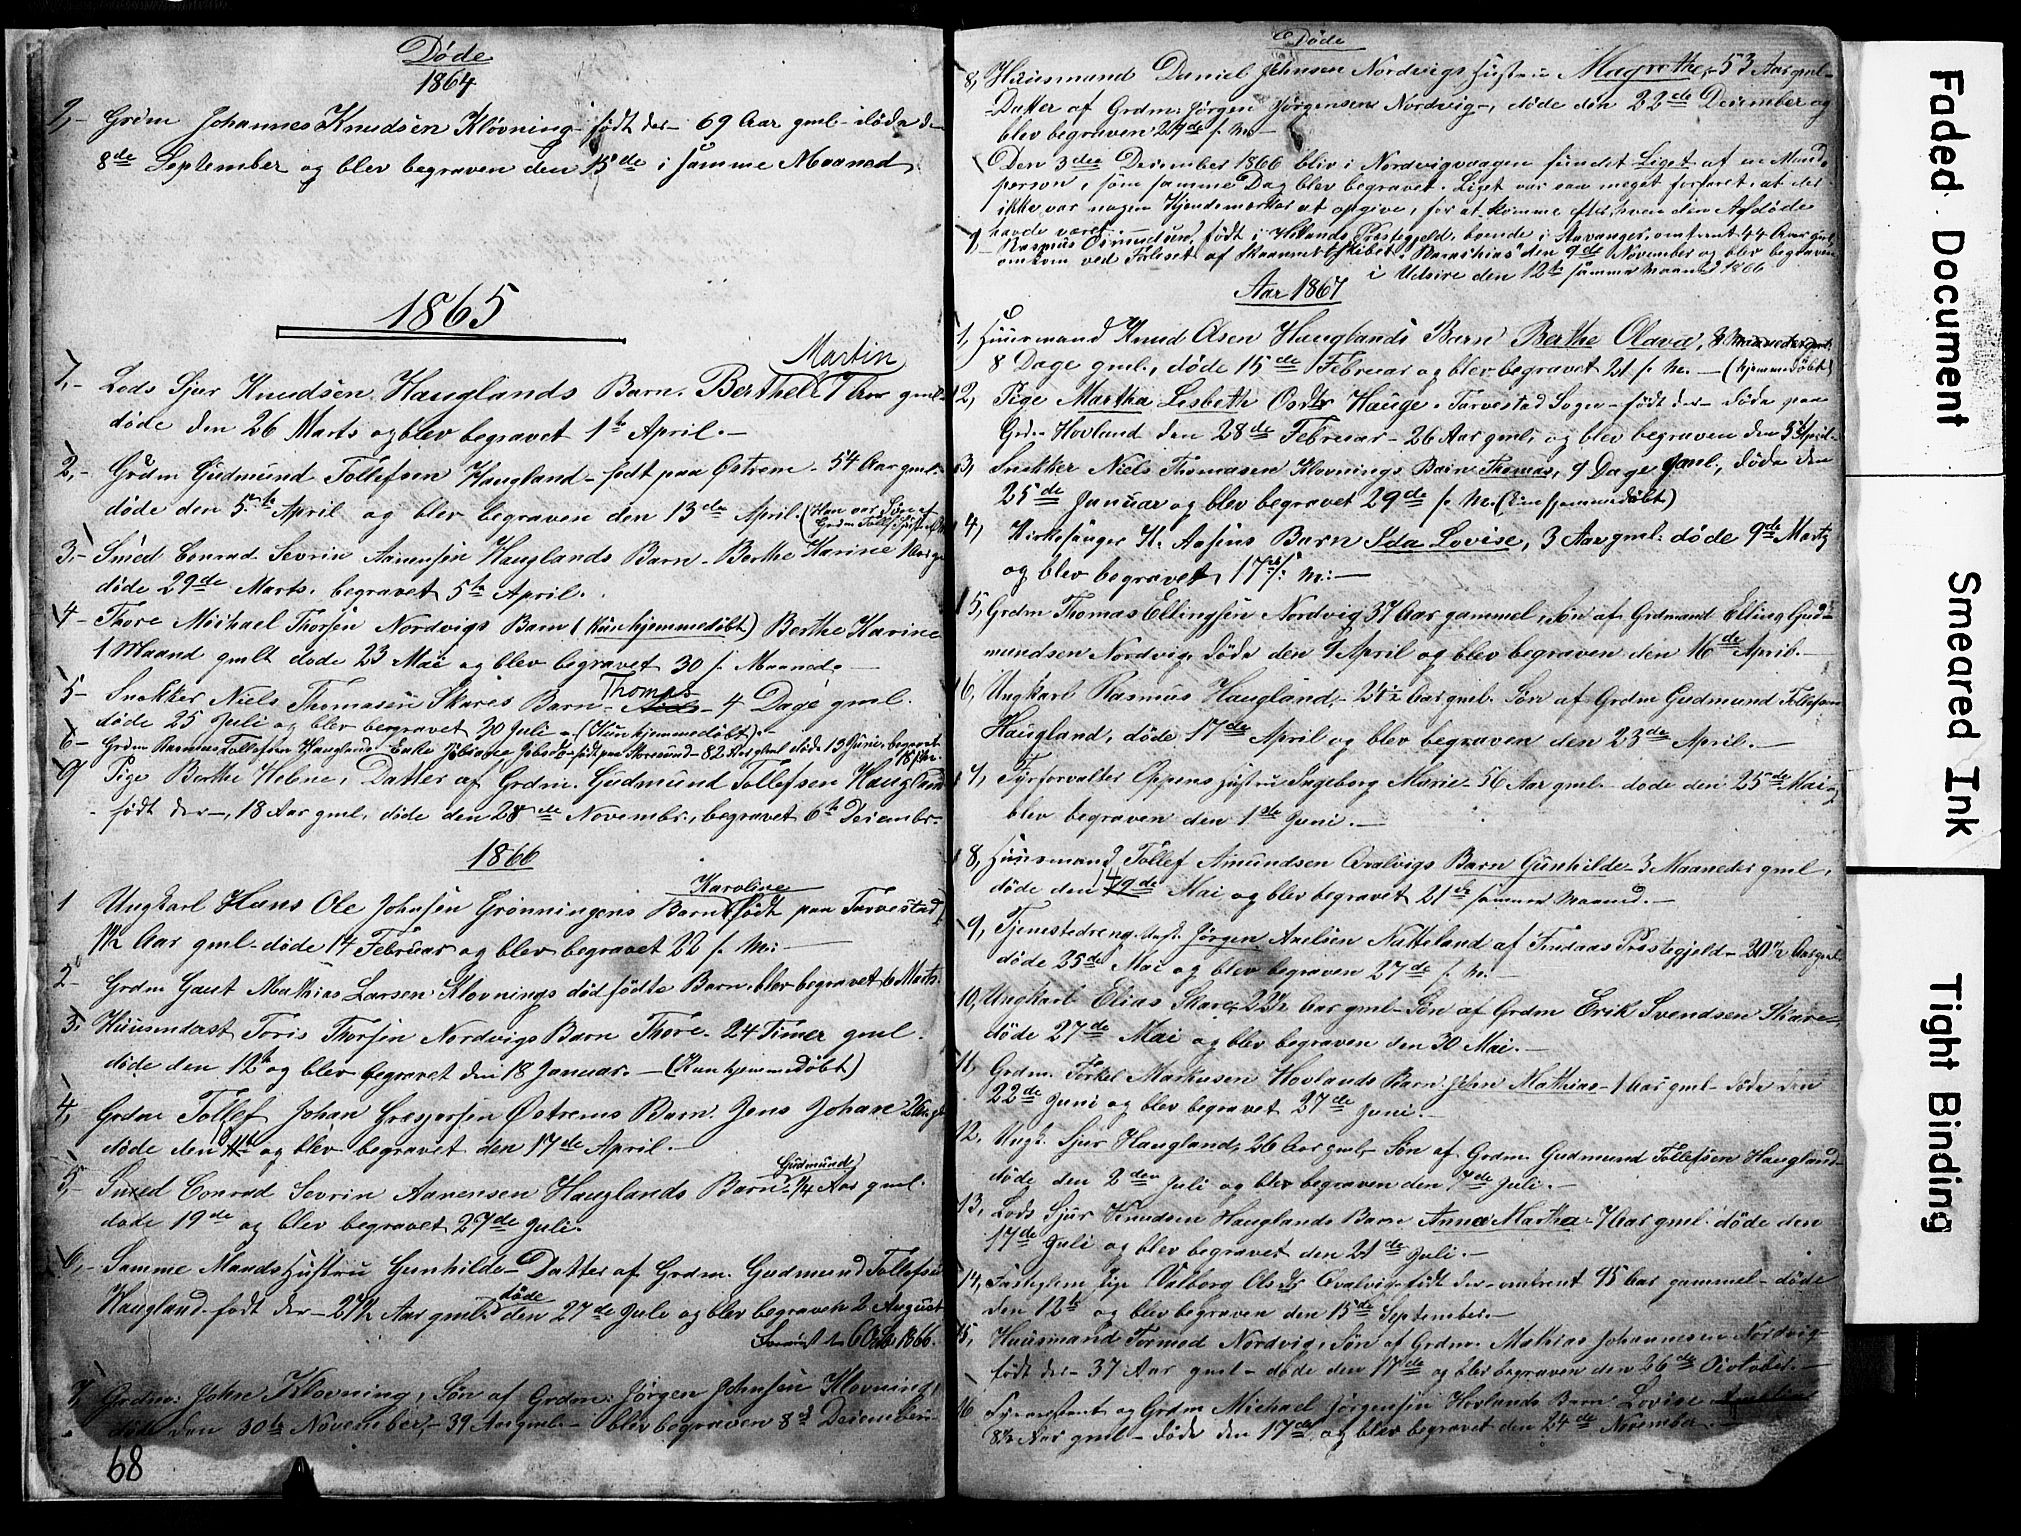 Døde
1864
2,- Grdm Johannes Knudsen Klovning født der - 69 Aar gml døde d
8de September og blev begraven den 15de i samme Maanad
1865
Martin
Lods Sjur Knudsen Hauglands Barn. Berthel 7 Aar gml
døde den 26 Marts og blev begravet 1te April.-
2,- Grdm Gudmund Tollefsen Haugland født paa Østrem - 54 Aar gml
døde den 5te April og blev begraven den 13de April. (Han var Søn af
Grdm Tollef
3- Smed Conrad Sevrin Aanensen Hauglands Barn - Berthe Karine
døde 29de Marts, begravet 5te April.
4- Thore Michael Thorsen Nordvigs Barn (kun hjemmedøbt) Berthe Karine
1 Maand gmlt døde 23 Mai og blev begravet 30 s. Maaned.
Thomas
5- Snekker Niels Thomasen Skares Barn - 4 Dage gml.
døde 25 Juli og blev begravet 30 Juli - (Kun hjemmedøbt)
6- Grdm Rasmus Tollefsen Hauglands Enke - født paa Storesund - 82 Aar gml døde 13 Juni, begravet
18 s. M.
9 Pige Berthe Helene, Datter af Grdm. Gudmund Tollefsen Haugland
født der -, 18 Aar gml, døde den 28de Novembr., begravet 6te Decembr.
1866
Karoline
1 Ungkarl Hans Ole Johnsen Grønningens Barn (født paa Torvestad)
1½ Aar gml - døde 14 Februar og blev begravet 22 s. M:
2- Grdm Gaut Mathias Larsen Klovnings død fødte Barn, blev begravet 6 Marts
3, Huusmdast Toris Thorsen Nordvigs Barn Thore - 24 Timer gml.
døde den 12te og blev begravet den 18 Januar. - (Kun hjemmedøbt)
4, Grdm Tollef Johan Gresjersen Østrems Barn: Jens Johan
døde den 11te og blev begravet den 17de April.-
Gudmund
5,- Smed Conrad Sevrin Aanensen Hauglands Barn - ¼ Aar gml.
døde 19de og blev begravet 27de Juli.
6,- Samme Mands Hustru Gunhilde - Datter af Grdm. Gudmund Tollefsen
døde
Haugland - født der - 27½ Aar gml. den 27de Juli og blev begraven 2 August
1866.
7, Grdm: John Klovning, Søn af Grdm: Jørgen Johnsen Klovning,
døde den 30te November, - 39 Aar gml. - blev begraven 8d December
68
Døde
8, Huusmand Daniel Johnsen Nordvigs Hustru Magrethe, - 53 Aar gml -
Datter af Grdm: Jørgen Jørgensen Nordvig -, døde den 22de December og
blev begraven 29de s. M -
Den 3die December 1866 blev i Nordvigvaagen fundet Liget af en Mands
person, som samme Dag blev begravet. Liget var saa meget fortæret, at der
ikke var nogen Kjendemærker at opgive, for at komme efter, hvem den Afdøde
havde været.
Rasmus Osmundsen, født i Præstegjeld, boende i Stavanger, omtrent 44 Aar gml
omkom ved Forliset af den 9de November og blev begraven
i Udsire den 12te samme Maaned 1866
Aar 1867
1, Huusmand Knud Olsen Hauglands Barn Berthe Olava,
8 Dage gml., døde 15de Februar og blev begravet 21 s. M. - (hjemmedøbt)
2, Pige Martha Lisbeth Hauge - Torvestad Sogn - født der - døde paa
Grd. Hovland den 28de Februar - 26 Aar gml, og blev begraven den 5 April
3, Snekker Niels Thomasen Klovnings Barn Thomas, 9 Dage gml, døde den
25de Januar og blev begravet 29de s. M. (kun hjemmedøbt)
4, Kirkesanger H. Aasens Barn Ida Lovise, 3 Aar gml. døde 9de Marts
og blev begravet 17de s. M:
5, Grdm Thomas Ellingsen Nordvig 37 Aar gammel, Søn af Grdmand Elling Gud-
mundsen Nordvig, døde den 9 April og blev begraven den 16de April.
6, Ungkarl Rasmus Haugland, - 21½ Aar gml. Søn af Grdm Gudmund Tollefsen
Haugland, døde 17de April og blev begraven den 23de April.
7, Fyrforvalter Oppens Hustru Ingeborg Marie - 56 Aar gml. - døde den 25de Mai og
blev begraven den 1ste Juni.
8, Huusmand Tollef Amundsen Qvalvigs Barn Gunhilde - 3 Maaneder gml,
døde den Mai og blev begravet 21de samme Maaned.
9, Tjenestedreng Jørgen Axelsen Natteland af Findaas Præstegjeld - 20½ Aar gml
døde 25de Mai og blev begraven 27de s. M.
10, Ungkarl Elias Skare, 22½ Aar gml - Søn af Grdm Erik Svendsen Skare -
døde 27de Mai og blev begraven den 30 Mai.
11, Grdm. Torkel Markusen Hovlands Barn John Mathias - 1 Aar gml - døde den
22de Juni og blev begravet 27de Juni.
12, Ungk. Sjur Haugland, 26 Aar gml - Søn af Grdm Gudmund Tollefsen Haugland -
døde den 2den Juli og blev begraven den 7de Juli.
13, Lods Sjur Knudsen Hauglands Barn Anna Martha - 7 Aar gml døde den
17de Juli og blev begravet den 21de Juli.
14, Pige Valborg Olsdtr Qvalvig født der - omtrent 95 Aar gammel - døde
den 12te og blev begraven den 15de September.
15, Huusmand Tormod Nordvig, Søn af Grdm. Mathias Johannesen Nordvig -
født der - 37 Aar gml - døde den 17de og blev begraven den 26de October.
16 og Grdm Michael Jørgensen Hovlands Barn Lovise
8½ Aar gml - døde den 17de og blev begravet den 24de November.
Faded Document
Smeared Ink
Tight Binding